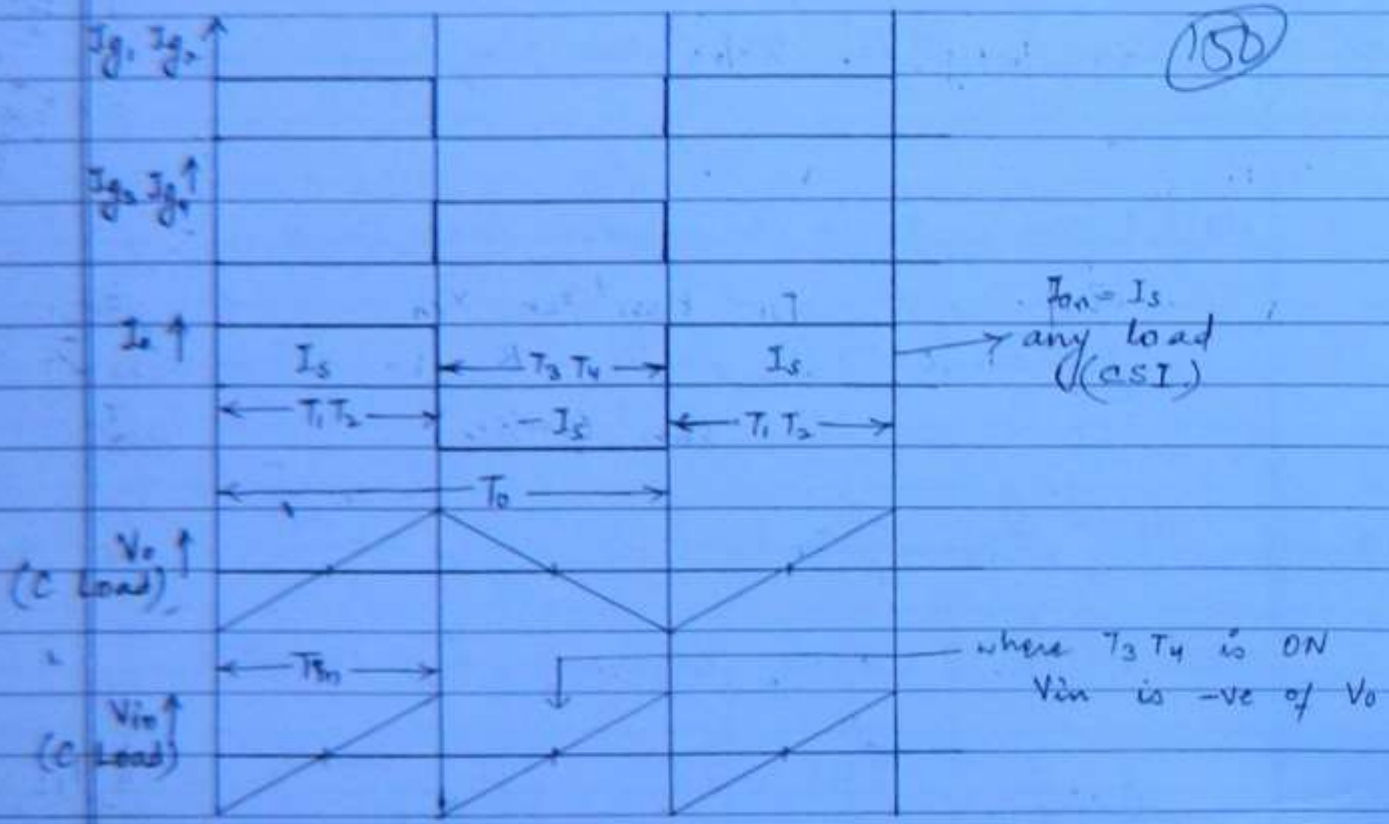 150
Ig₁ Ig₂ ↑
Ig₃ Ig₄ ↑
I₀ ↑
I_s
T₃ T₄
I_s
I₀ₙ = I_s
any load
(CSI)
T₁ T₂
- I_s
T₁ T₂
T₀
V₀ ↑
(C Load)
where T₃ T₄ is ON
Vin is -ve of V₀
Vin ↑
(C Load)